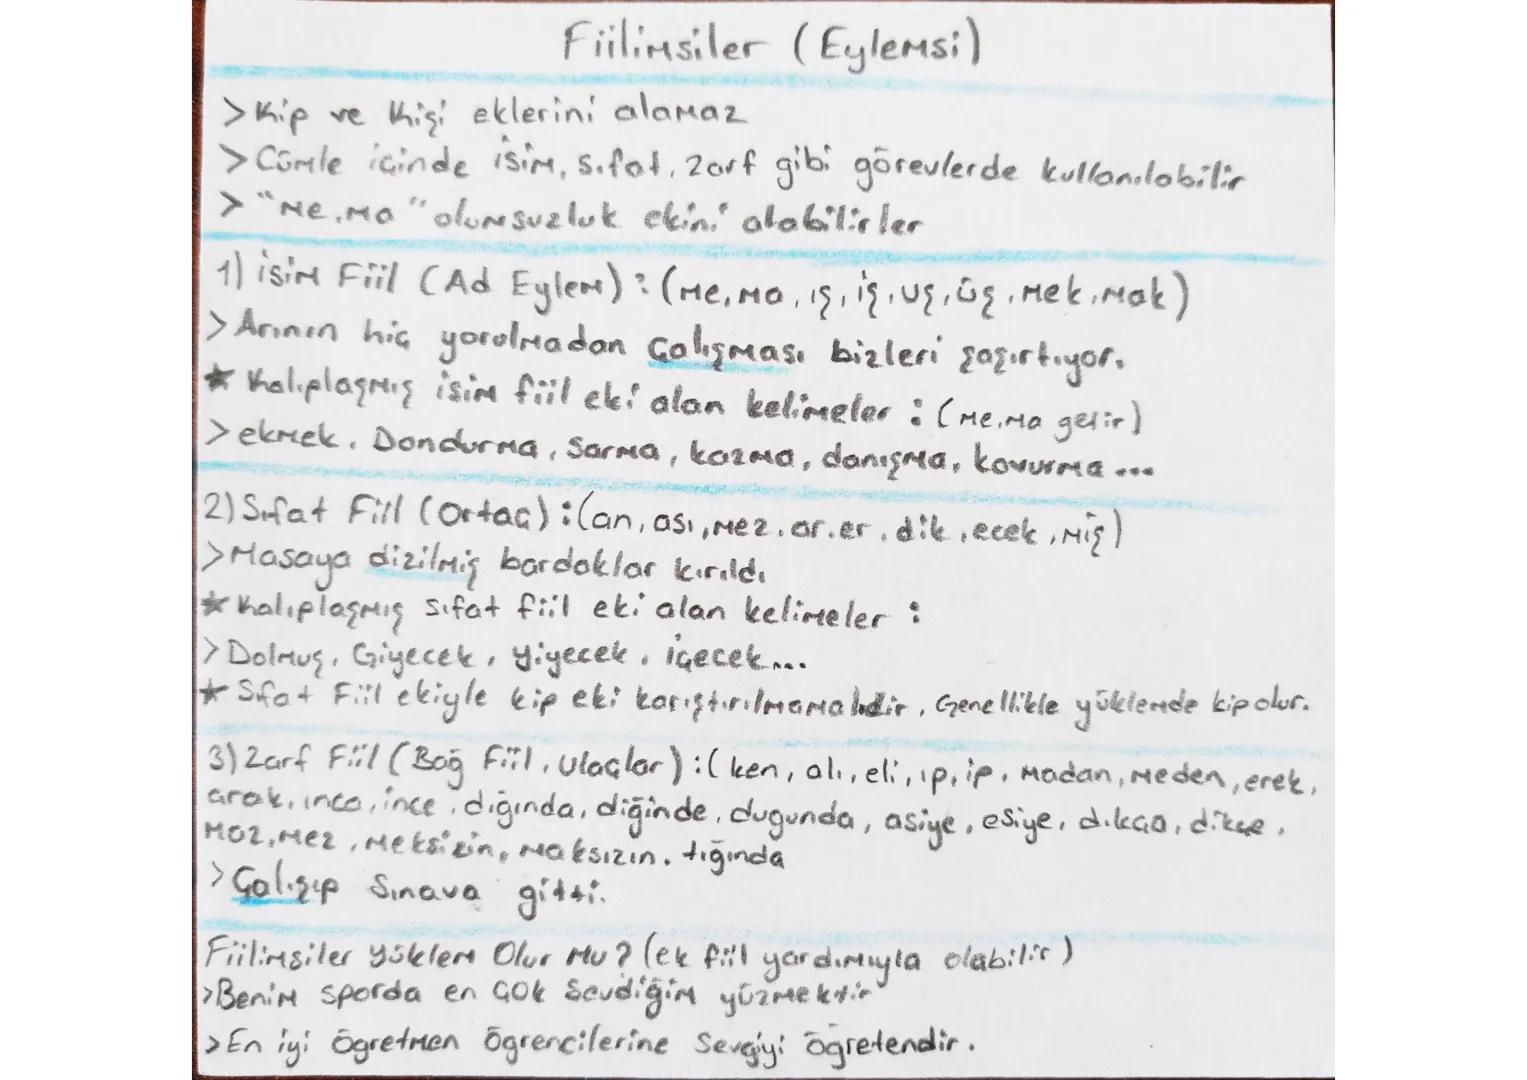 Fiilimsiler (Eylemsi)
>Kip ve Kişi eklerini alamaz
>Cümle içinde isim, sıfat, zarf gibi görevlerde kullanılabilir
>"me,ma" olumsuzluk ekini alabilirler
1) isim Fiil (Ad Eylem) : (me, ma, ış, iş, uş, üş, mek, mak)
>Arının hiç yorulmadan çalışması bizleri şaşırtıyor.
* Kalıplaşmış isim fiil eki alan kelimeler : (me,ma gelir)
>ekmek, Dondurma, Sarma, kazma, danışma, kavurma ...
2) Sıfat Fiil (Ortaç) : (an, ası, mez, ar, er, dik, ecek, miş)
>Masaya dizilmiş bardaklar kırıldı
* Kalıplaşmış sıfat fiil eki alan kelimeler :
>Dolmuş, Giyecek, Yiyecek, içecek...
* Sıfat Fiil ekiyle kip eki karıştırılmamalıdır, Genellikle yüklemde kip olur.
3) Zarf Fiil (Bağ Fiil, Ulaçlar) : ( ken, alı, eli, ıp, ip, madan, meden, erek,
arak, ınca, ince, dığında, diğinde, dugunda, asiye, esiye, dıkça, dikçe,
maz, mez, meksizin, maksızın, tığında
>Çalışıp Sınava gitti.
Fiilimsiler Yüklem Olur Mu? (ek fiil yardımıyla olabilir)
>Benim sporda en çok Sevdiğim yüzmektir
>En iyi öğretmen öğrencilerine Sevgiyi öğretendir.